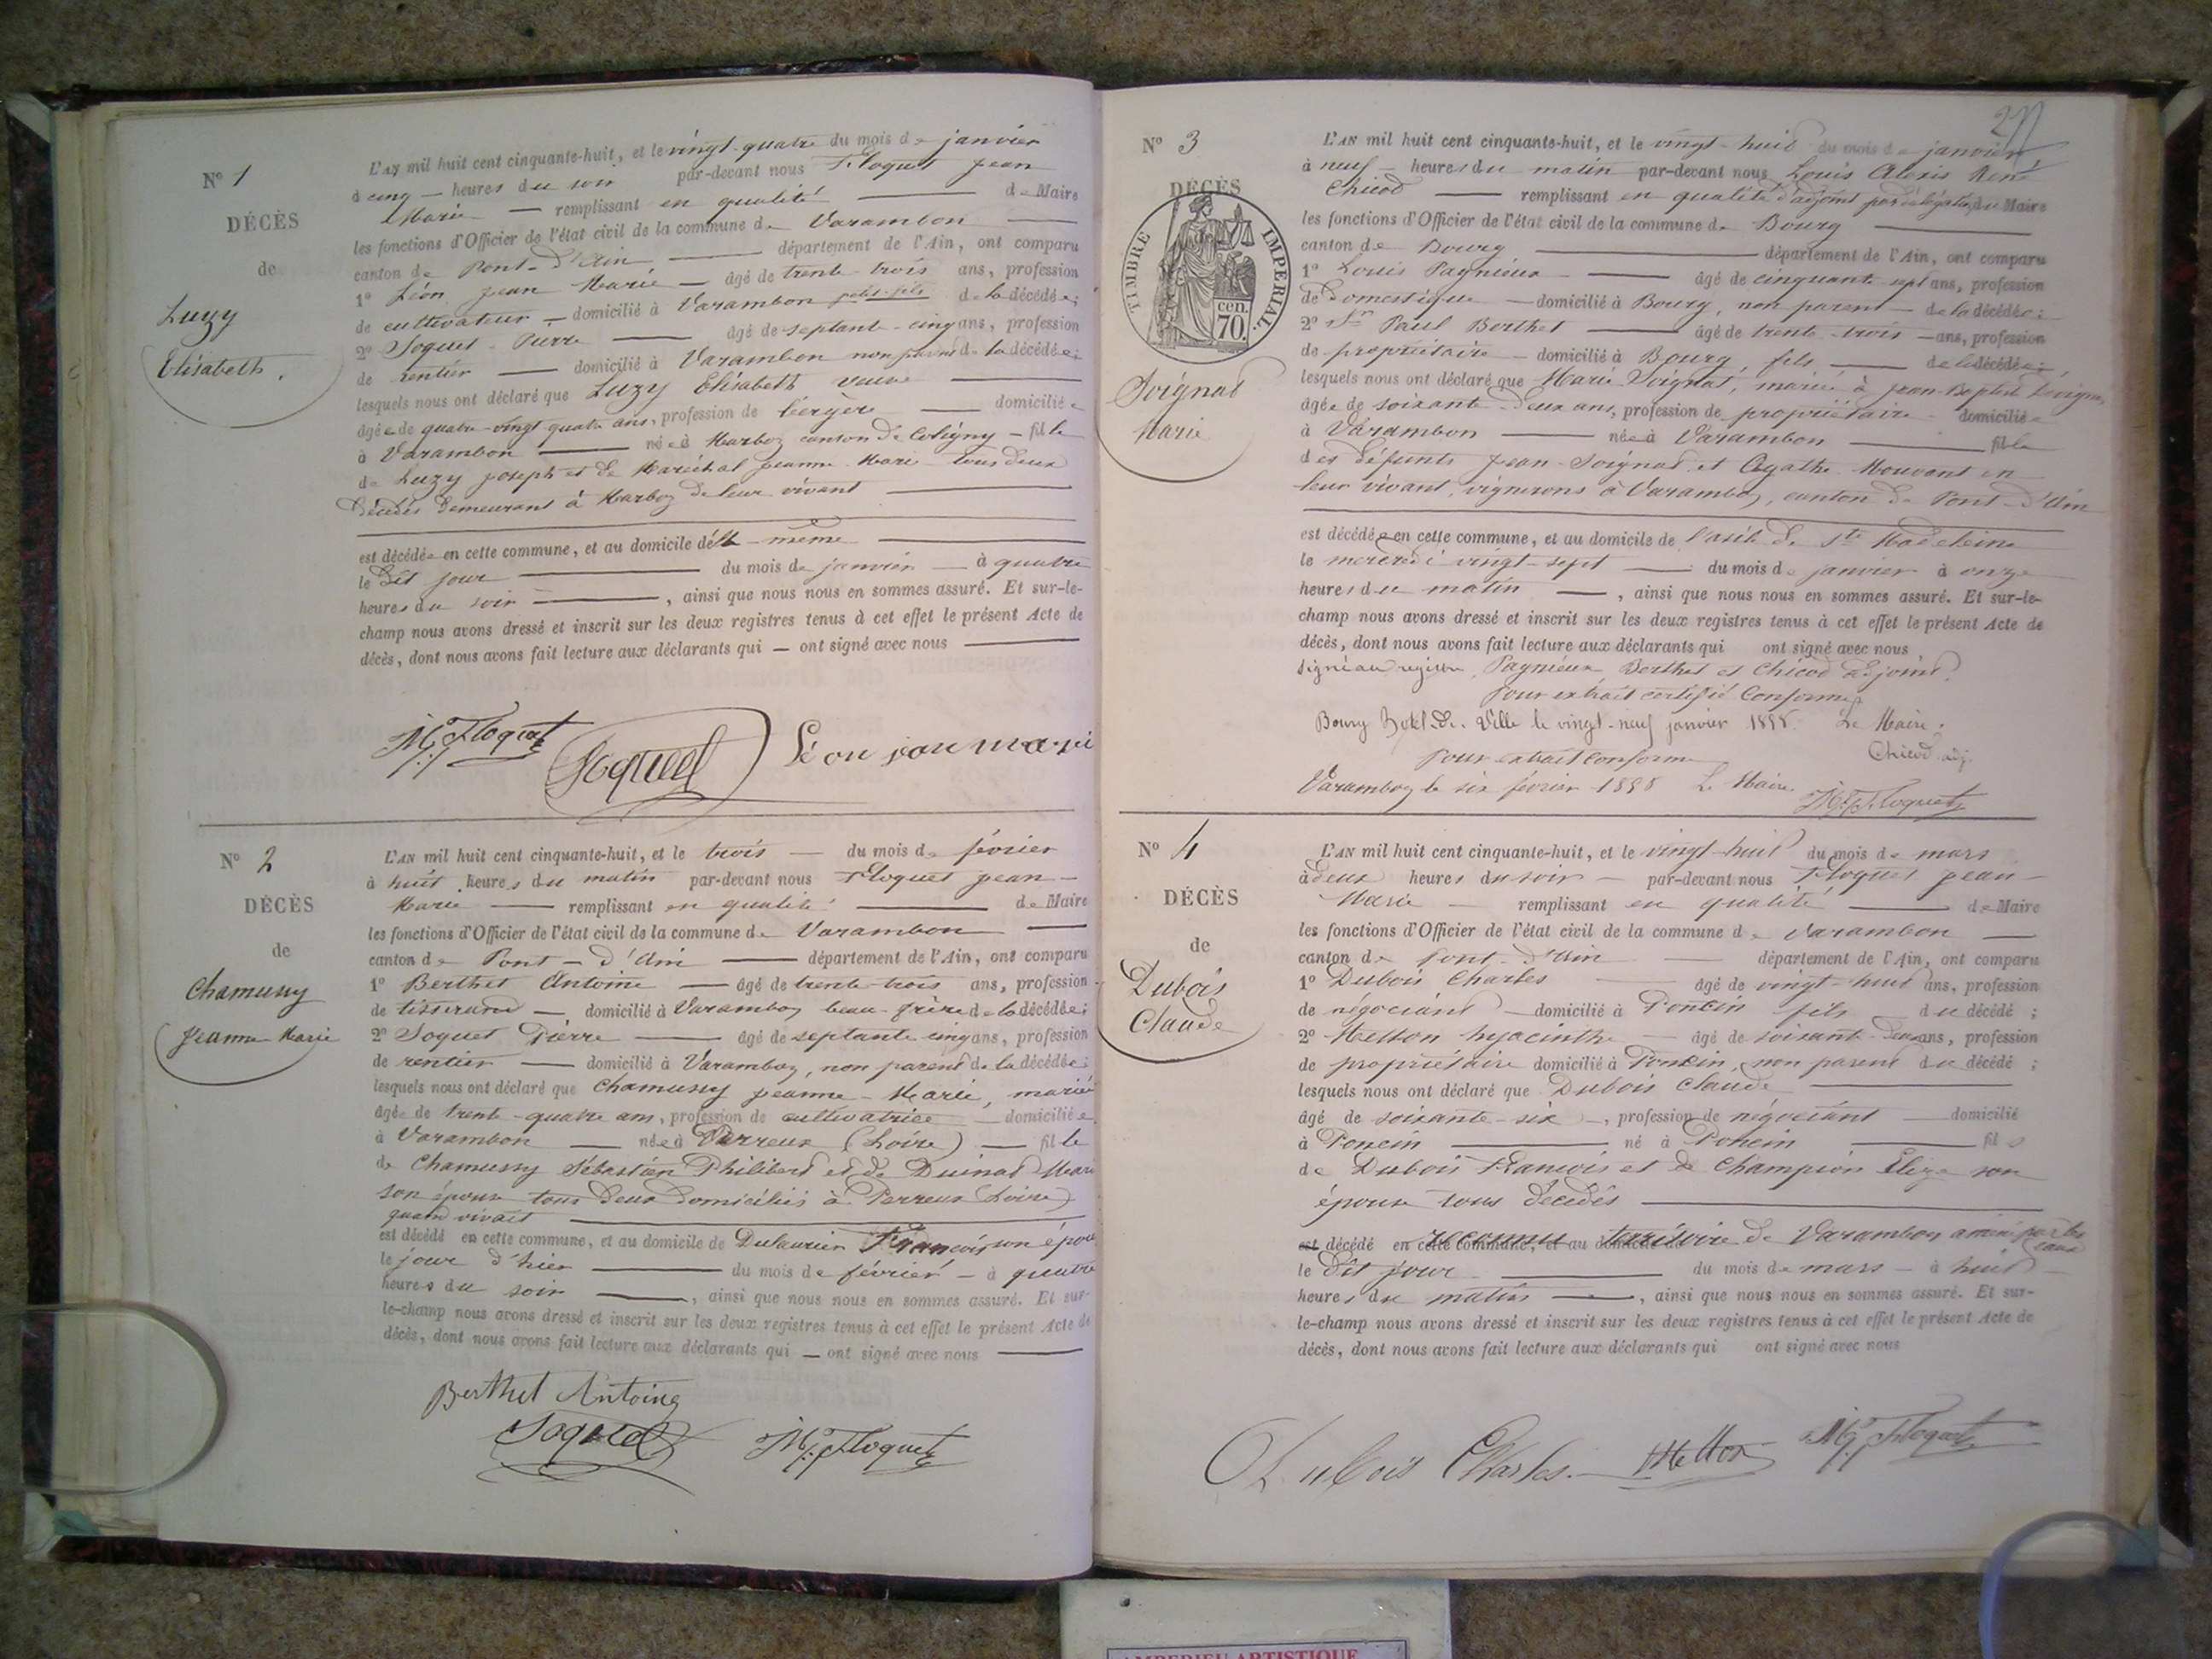 N° 1
DÉCÈS
de
Luzy
Elisabeth.
L'AN mil huit cent cinquante-huit, et le vingt-quatre du mois de janvier
à cinq — heures du soir par-devant nous Floquet jean
Marie — remplissant en qualité — de Maire
les fonctions d'Officier de l'état civil de la commune de Varambon —
canton de Pont-d'Ain — département de l'Ain, ont comparu
1° Léon jean Marie — âgé de trente-trois ans, profession
de cultivateur — domicilié à Varambon petit-fils de la décédée;
2° Soquet Pierre — âgé de septante-cinq ans, profession
de rentier — domicilié à Varambon non parent de la décédée;
lesquels nous ont déclaré que Luzy Elisabeth veuve —
âgée de quatre-vingt quatre ans, profession de bergère — domiciliée
à Varambon — née à Marboz canton de Coligny — fille
de Luzy joseph et de Maréchal jeanne Marie tous deux
décédés demeurant à Marboz de leur vivant —
est décédée en cette commune, et au domicile d'elle-même —
le dit jour — du mois de janvier — à quatre
heures du soir —, ainsi que nous nous en sommes assuré. Et sur-le-
champ nous avons dressé et inscrit sur les deux registres tenus à cet effet le présent Acte de
décès, dont nous avons fait lecture aux déclarants qui — ont signé avec nous —
Floquet
Soquet
Léon jean mari
N° 2
DÉCÈS
de
Chamussy
Jeanne Marie
L'AN mil huit cent cinquante-huit, et le trois — du mois de février
à huit heures du matin par-devant nous Floquet jean-
Marie — remplissant en qualité — de Maire
les fonctions d'Officier de l'état civil de la commune de Varambon —
canton de Pont-d'Ain — département de l'Ain, ont comparu
1° Berthet Antoine — âgé de trente-trois ans, profession
de tisserand — domicilié à Varambon beau-frère de la décédée;
2° Soquet Pierre — âgé de septante cinq ans, profession
de rentier — domicilié à Varambon, non parent de la décédée;
lesquels nous ont déclaré que Chamussy jeanne-Marie, mariée
âgée de trente-quatre ans, profession de cultivatrice — domiciliée
à Varambon — née à Perreux (Loire) — fille
de Chamussy Sébastien Philibert et de Marie
son épouse tous deux domiciliés à Perreux Loire)
quand vivait —
est décédé en cette commune, et au domicile de François son époux
le jour d'hier — du mois de février — à quatre
heures du soir —, ainsi que nous nous en sommes assuré. Et sur-
le-champ nous avons dressé et inscrit sur les deux registres tenus à cet effet le présent Acte de
décès, dont nous avons fait lecture aux déclarants qui — ont signé avec nous —
Berthet Antoine
Soquet
Floquet
N° 3
DÉCÈS
de
TIMBRE IMPERIAL.
cen. 70.
Soignat
Marie
L'AN mil huit cent cinquante-huit, et le vingt-huit du mois de janvier
à neuf — heures du matin par-devant nous Louis Alexis René
Chicod — remplissant en qualité d'adjoint par délégation du Maire
les fonctions d'Officier de l'état civil de la commune de Bourg —
canton de Bourg — département de l'Ain, ont comparu
1° Louis Pagnieux — âgé de cinquante-sept ans, profession
de domestique — domicilié à Bourg, non parent — de la décédée;
2° Sr Paul Berthet — âgé de trente-trois — ans, profession
de propriétaire — domicilié à Bourg, fils — de la décédée;
lesquels nous ont déclaré que Marie Soignat, mariée à jean-Baptiste
âgée de soixante-deux ans, profession de propriétaire domiciliée
à Varambon — née à Varambon — fille
des défunts jean Soignat et Agathe Mouvant en
leur vivant, vignerons à Varambon, canton de Pont-d'Ain
est décédée en cette commune, et au domicile de l'asile de Ste Madeleine
le mercredi vingt-sept — du mois de janvier à onze
heures du matin —, ainsi que nous nous en sommes assuré. Et sur-le-
champ nous avons dressé et inscrit sur les deux registres tenus à cet effet le présent Acte de
décès, dont nous avons fait lecture aux déclarants qui ont signé avec nous
signé au registre, Pagnieux Berthet et Chicod adjoint.
Pour extrait certifié Conforme
Bourg Hôtel-de-Ville le vingt-neuf janvier 1858. Le Maire;
Chicod adj.
Pour extrait conforme
Varambon le six février 1858 Le Maire
Floquet
N° 4
DÉCÈS
de
Dubois
Claude
L'AN mil huit cent cinquante-huit, et le vingt-huit du mois de mars
à deux heures du soir — par-devant nous Floquet jean-
Marie — remplissant en qualité — de Maire
les fonctions d'Officier de l'état civil de la commune de Varambon —
canton de Pont-d'Ain — département de l'Ain, ont comparu
1° Dubois Charles — âgé de vingt-huit ans, profession
de négociant — domicilié à Poncin fils du décédé;
2° Metton hyacinthe — âgé de soixante-deux ans, profession
de propriétaire domicilié à Poncin, non parent du décédé;
lesquels nous ont déclaré que Dubois Claude —
âgé de soixante-six —, profession de négociant — domicilié
à Poncin — né à Poncin — fils
de Dubois François et de Champion Elize son
épouse tous décédés —
est décédé en cette commune, et au domicile de reconnu territoire de Varambon amené par les eaux
le dit jour — du mois de mars — à huit —
heures du matin —, ainsi que nous nous en sommes assuré. Et sur-
le-champ nous avons dressé et inscrit sur les deux registres tenus à cet effet le présent Acte de
décès, dont nous avons fait lecture aux déclarants qui ont signé avec nous
Dubois Charles.
Metton
Floquet
AMBERIEU ARTISTIQUE